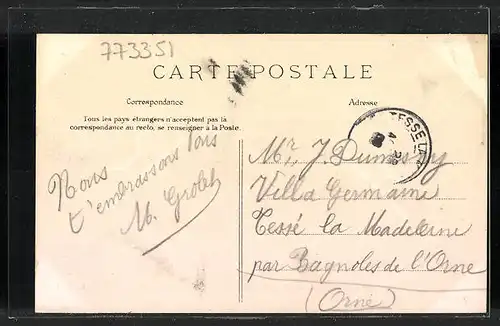 773351
CARTE POSTALE
Correspondance
Tous les pays étrangers n'acceptent pas la
correspondance au recto, se renseigner à la Poste.
Nous
t'embrassons tous
M.
Adresse
TESSE LA
Mr. J.
Villa Germaine
Tessé la Madeleine
par Bagnoles de l'Orne
(Orne)